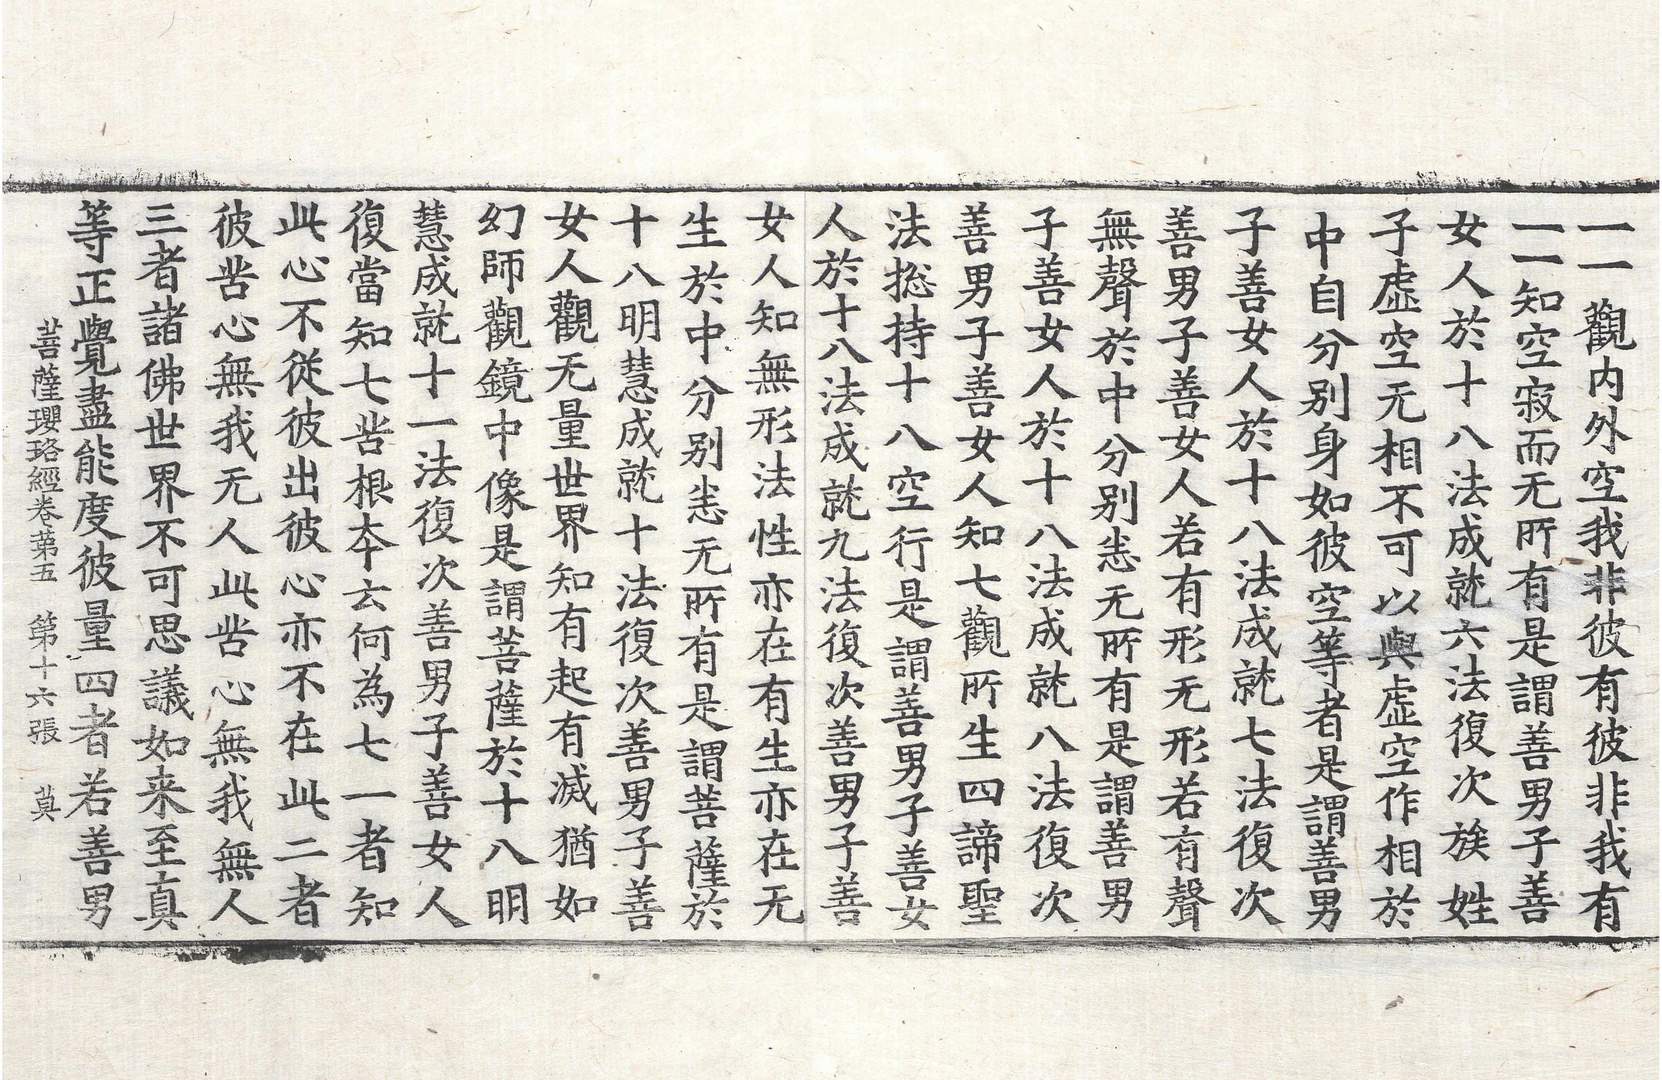 一一觀内外空我非彼有彼非我有
一一知空寂而无所有是謂善男子善
女人於十八法成就六法復次族姓
子虛空无相不可以與虛空作相於
中自分別身如彼空等者是謂善男
子善女人於十八法成就七法復次
善男子善女人若有形无形若有聲
無聲於中分別悉无所有是謂善男
子善女人於十八法成就八法復次
善男子善女人知七觀所生四諦聖
法捴持十八空行是謂善男子善女
人於十八法成就九法復次善男子善
女人知無形法性亦在有生亦在无
生於中分別悉无所有是謂菩薩於
十八明慧成就十法復次善男子善
女人觀无量世界知有起有滅猶如
幻師觀鏡中像是謂菩薩於十八明
慧成就十一法復次善男子善女人
復當知七苦根夲云何為七一者知
此心不從彼出彼心亦不在此二者
彼苦心無我无人此苦心無我無人
三者諸佛世界不可思議如来至真
等正覺盡能度彼量四者若善男
菩薩瓔珞經卷苐五　第十六張　莫